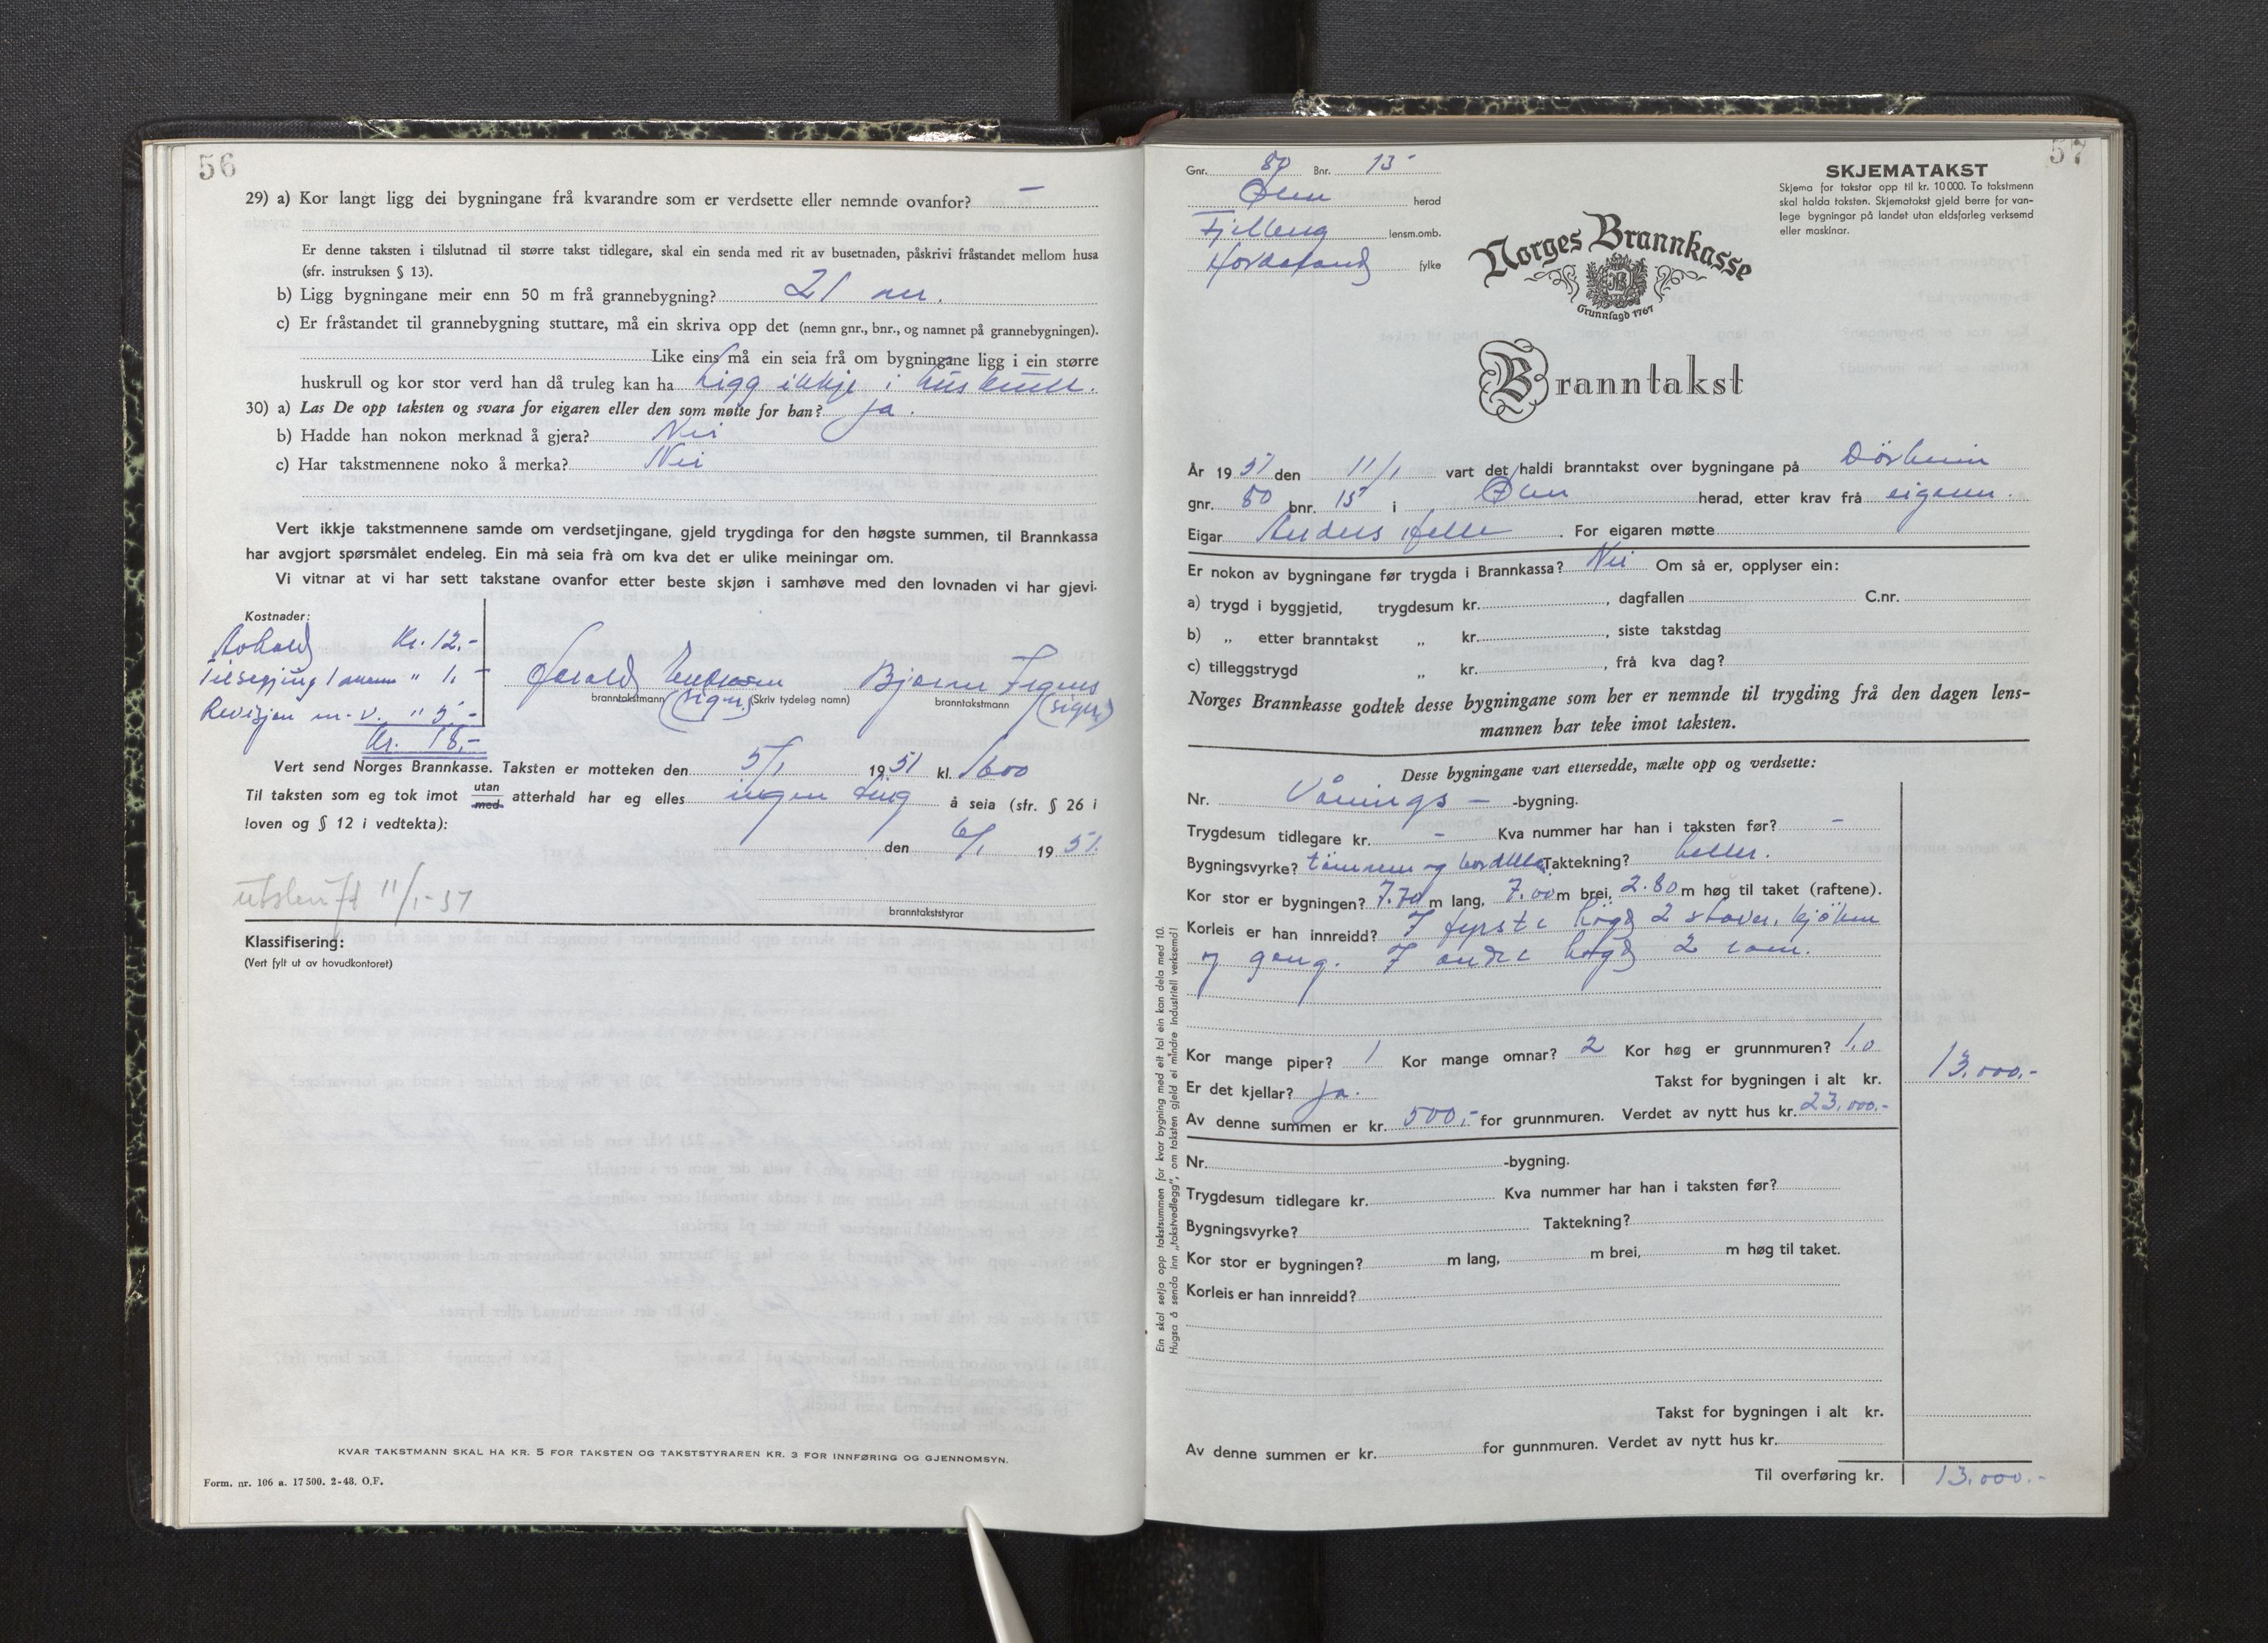 56
29) a) Kor langt ligg dei bygningane frå kvarandre som er verdsette eller nemnde ovanfor? —
Er denne taksten i tilslutnad til større takst tidlegare, skal ein senda med rit av busetnaden, påskrivi fråstandet mellom husa
(sfr. instruksen § 13).
b) Ligg bygningane meir enn 50 m frå grannebygning? 21 m.
c) Er fråstandet til grannebygning stuttare, må ein skriva opp det (nemn gnr., bnr., og namnet på grannebygningen).
Like eins må ein seia frå om bygningane ligg i ein større
huskrull og kor stor verd han då truleg kan ha Ligg ikkje i huskrull.
30) a) Las De opp taksten og svara for eigaren eller den som møtte for han? ja.
b) Hadde han nokon merknad å gjera? Nei
c) Har takstmennene noko å merka? Nei
Vert ikkje takstmennene samde om verdsetjingane, gjeld trygdinga for den høgste summen, til Brannkassa
har avgjort spørsmålet endeleg. Ein må seia frå om kva det er ulike meiningar om.
Vi vitnar at vi har sett takstane ovanfor etter beste skjøn i samhøve med den lovnaden vi har gjevi.
Kostnader:
Avhald Kr. 12.-
Tilsegjing 1 mann " 1.-
Revisjon m. v. " 5.-
Kr. 18,-
Harald Bjarne
branntakstmann (sign.) (Skriv tydeleg namn) branntakstmann (sign)
Vert send Norges Brannkasse. Taksten er motteken den 5/1 1951 kl. 1600
Til taksten som eg tok imot utan/med atterhald har eg elles ingen ting å seia (sfr. § 26 i
loven og § 12 i vedtekta):
den 6/1 1951.
utskrift 11/1-51
branntakststyrar
Klassifisering:
(Vert fylt ut av hovudkontoret)
KVAR TAKSTMANN SKAL HA KR. 5 FOR TAKSTEN OG TAKSTSTYRAREN KR. 3 FOR INNFØRING OG GJENNOMSYN.
Form. nr. 106 a. 17 500. 2-48. O.F.
57
Gnr. 80 Bnr. 15
Ølen herad
Fjelberg lensm.omb.
Hordaland fylke
SKJEMATAKST
Skjema for takstar opp til kr. 10 000. To takstmenn
skal halda taksten. Skjematakst gjeld berre for van-
lege bygningar på landet utan eldsfarleg verksemd
eller maskinar.
Norges Brannkasse
Grunnlagd 1767
Branntakst
År 1951 den 11/1 vart det haldi branntakst over bygningane på
gnr. 80 bnr. 15 i Ølen herad, etter krav frå eigaren.
Eigar Anders . For eigaren møtte
Er nokon av bygningane før trygda i Brannkassa? Nei Om så er, opplyser ein:
a) trygd i byggjetid, trygdesum kr. , dagfallen C.nr.
b) „ etter branntakst „ kr. , siste takstdag
c) tilleggstrygd „ kr. , frå kva dag?
Norges Brannkasse godtek desse bygningane som her er nemnde til trygding frå den dagen lens-
mannen har teke imot taksten.
Desse bygningane vart ettersedde, mælte opp og verdsette:
Nr. Vånings- -bygning.
Trygdesum tidlegare kr. - Kva nummer har han i taksten før? -
Bygningsvyrke? tømmer og bordkledd. Taktekning? heller.
Kor stor er bygningen? 7.70 m lang, 7.00 m brei, 2.80 m høg til taket (raftene).
Korleis er han innreidd? I fyrste høgd 2 stover, kjøken
og gang. I andre høgd 2 rom.
Kor mange piper? 1 Kor mange omnar? 2 Kor høg er grunnmuren? 1.0
Er det kjellar? ja. Takst for bygningen i alt kr. 13.000.-
Av denne summen er kr. 500,- for grunnmuren. Verdet av nytt hus kr. 23.000.-
Nr. -bygning.
Trygdesum tidlegare kr. Kva nummer har han i taksten før?
Bygningsvyrke? Taktekning?
Kor stor er bygningen? m lang, m brei, m høg til taket.
Korleis er han innreidd?
Takst for bygningen i alt kr.
Av denne summen er kr. for gunnmuren. Verdet av nytt hus kr.
Til overføring kr. 13.000.-
Ein skal setja opp takstsummen for kvar bygning med eit tal ein kan dela med 10.
Hugsa å senda inn „takstvedlegg", om taksten gjeld ei mindre industriell verksemd!